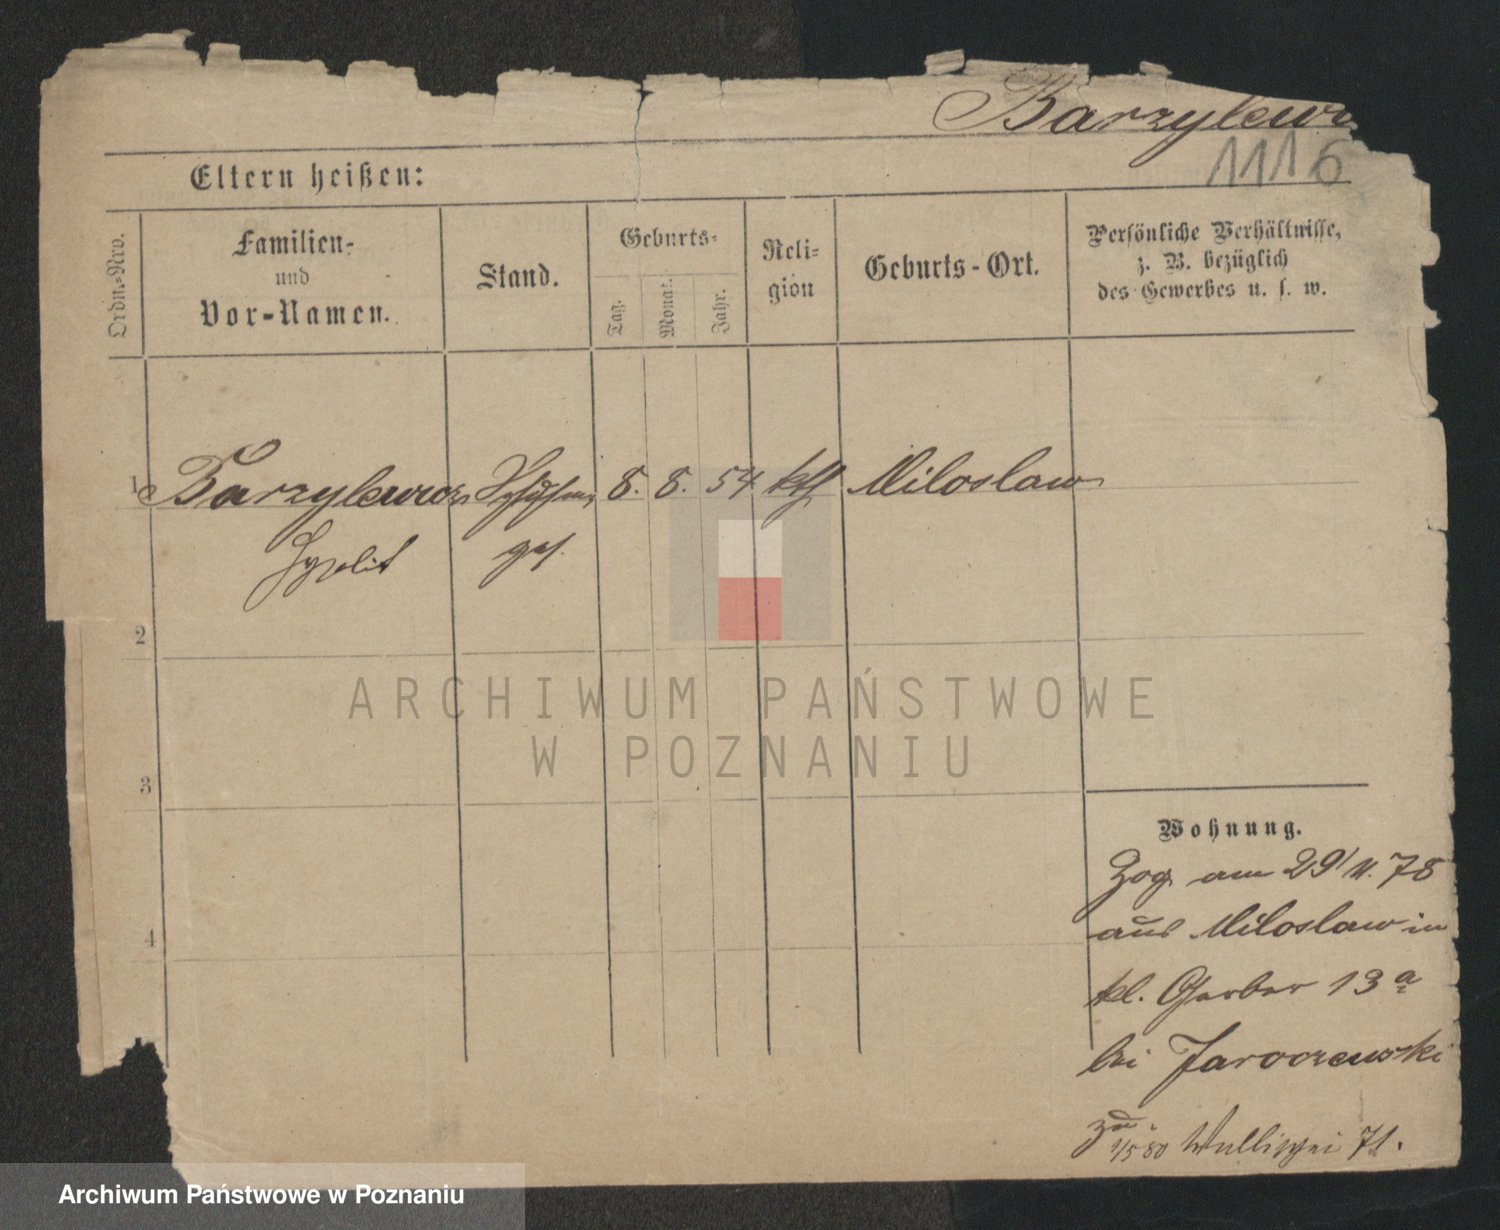 Barzylewi
1116
Eltern heißen:
Ordn.-Nro.
Familien-
und
Vor-Namen.
Stand.
Geburts-
Tag.
Monat.
Jahr.
Reli-
gion
Geburts-Ort.
Persönliche Verhältnisse,
z. B. bezüglich
des Gewerbes u. s. w.
1 Barzylewicz 8. 8. 54 kth Miloslaw
Hypolit ges.
2
3
4
Wohnung.
Zog am 29/11. 78
aus Miloslaw in
kl. Gerber 13a
bei Jaroczewski
zu 1/5 80 71.
ARCHIWUM PAŃSTWOWE
W POZNANIU
Archiwum Państwowe w Poznaniu